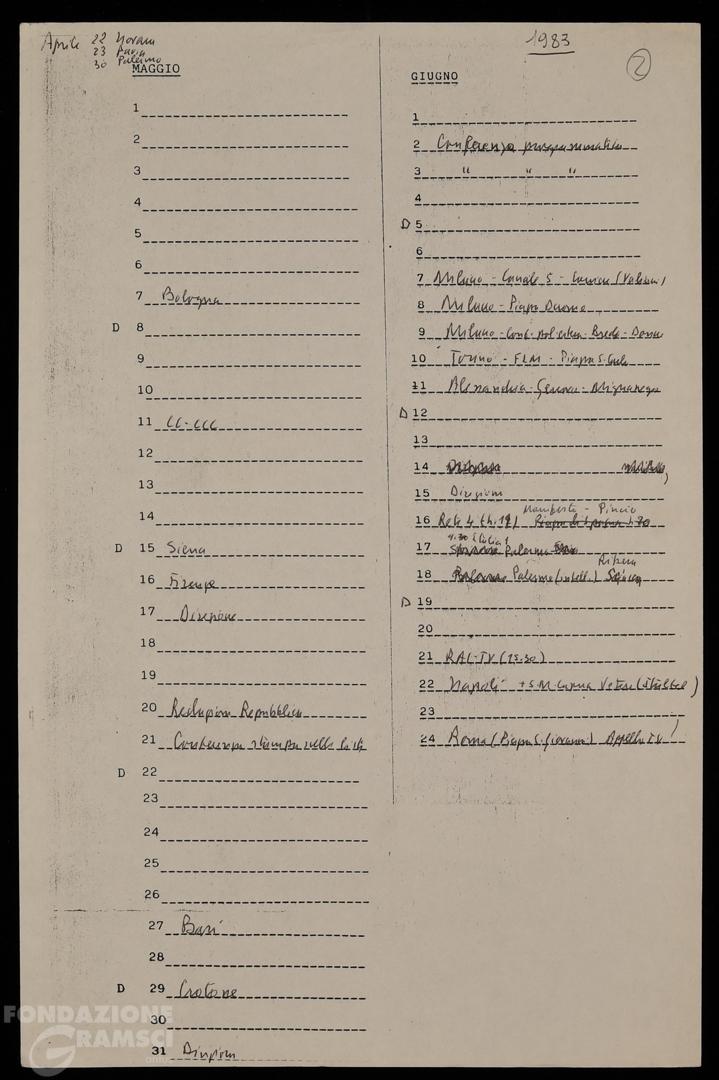 Aprile 22 Novara
23 Pavia
30 Palermo
MAGGIO
1
2
3
4
5
6
7 Bologna
D 8
9
10
11 CC-CCC
12
13
14
D 15 Siena
16 Firenze
17 Direzione
18
19
20 Redazione Repubblica
21 Conferenza stampa sulle liste
D 22
23
24
25
26
27 Bari
28
D 29 Crotone
30
31 Direzione
1983
2
GIUGNO
1
2 Conferenza programmatica
3 " " "
4
D 5
6
7 Milano - Canale 5 -
8 Milano - Piazza Duomo
9 Milano - Breda -
10 Torino - FLM - Piazza S. Carlo
11 Alessandria - Genova -
D 12
13
14
15 Direzione
Manifesto - Pincio
16 Rete 4 (h. 19)
17 Palermo
Ribera
18 Palermo (intell.) Sciacca
D 19
20
21 RAI-TV (15.30)
22 Napoli + S.M. Capua Vetere
23
24 Roma (Piazza S. Giovanni) Appello TV
FONDAZIONE
GRAMSCI